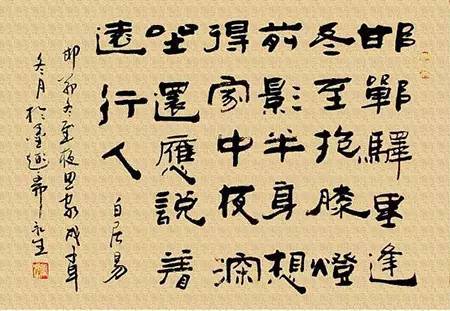 邯鄲驛里逢
冬至抱膝燈
前影半身想
得家中夜深
坐還應說着
遠行人
白居易
邯鄲冬至夜思家
冬月於墨趣齋永生